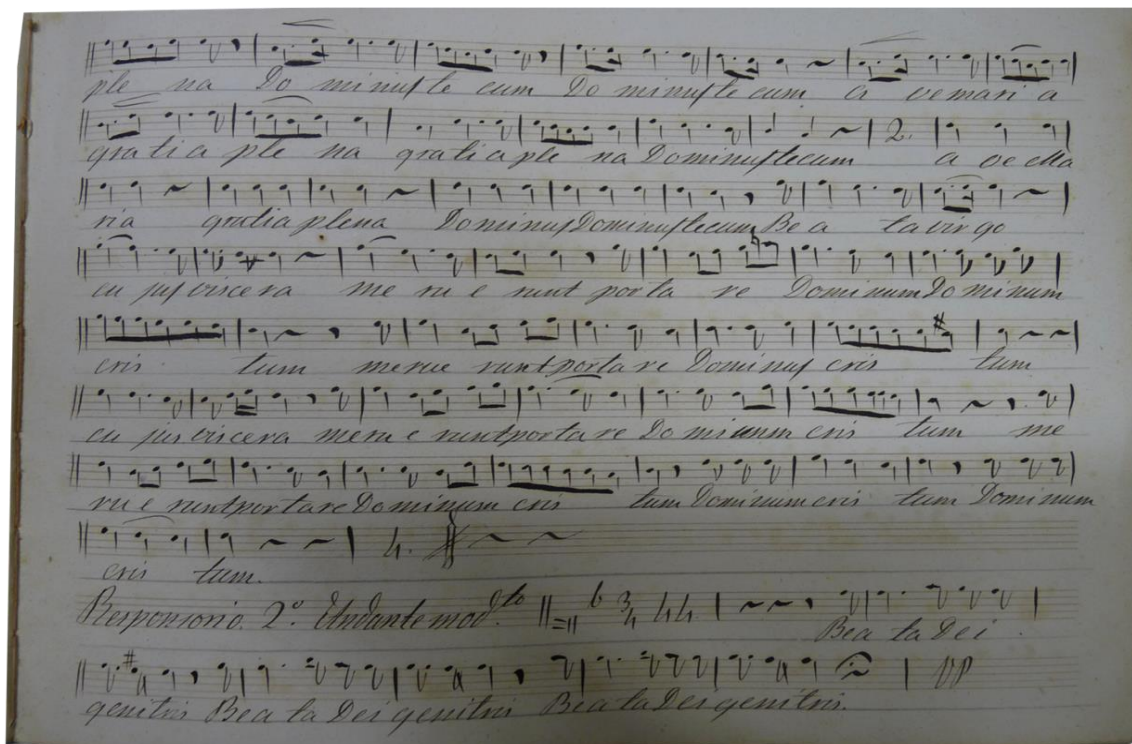 ple na Do minus te cum Do minus te cum a ve mari a
gratia ple na gratia ple na Dominus tecum 2. a ve Ma
ria gratia plena Dominus Dominus tecum Be a ta virgo
cu jus viscera me ru e runt porta re Dominum Do minum
cris tum merue runt portare Dominus cris tum
cu jus viscera meru e runt portare Do minum cris tum me
ru e runt portare Dominum cris tum Dominum cris tum Dominum
cris tum.
Responsorio. 2º. Andante modto.
Bea ta Dei
genitris Bea ta Dei genitris Bea ta Dei genitris.